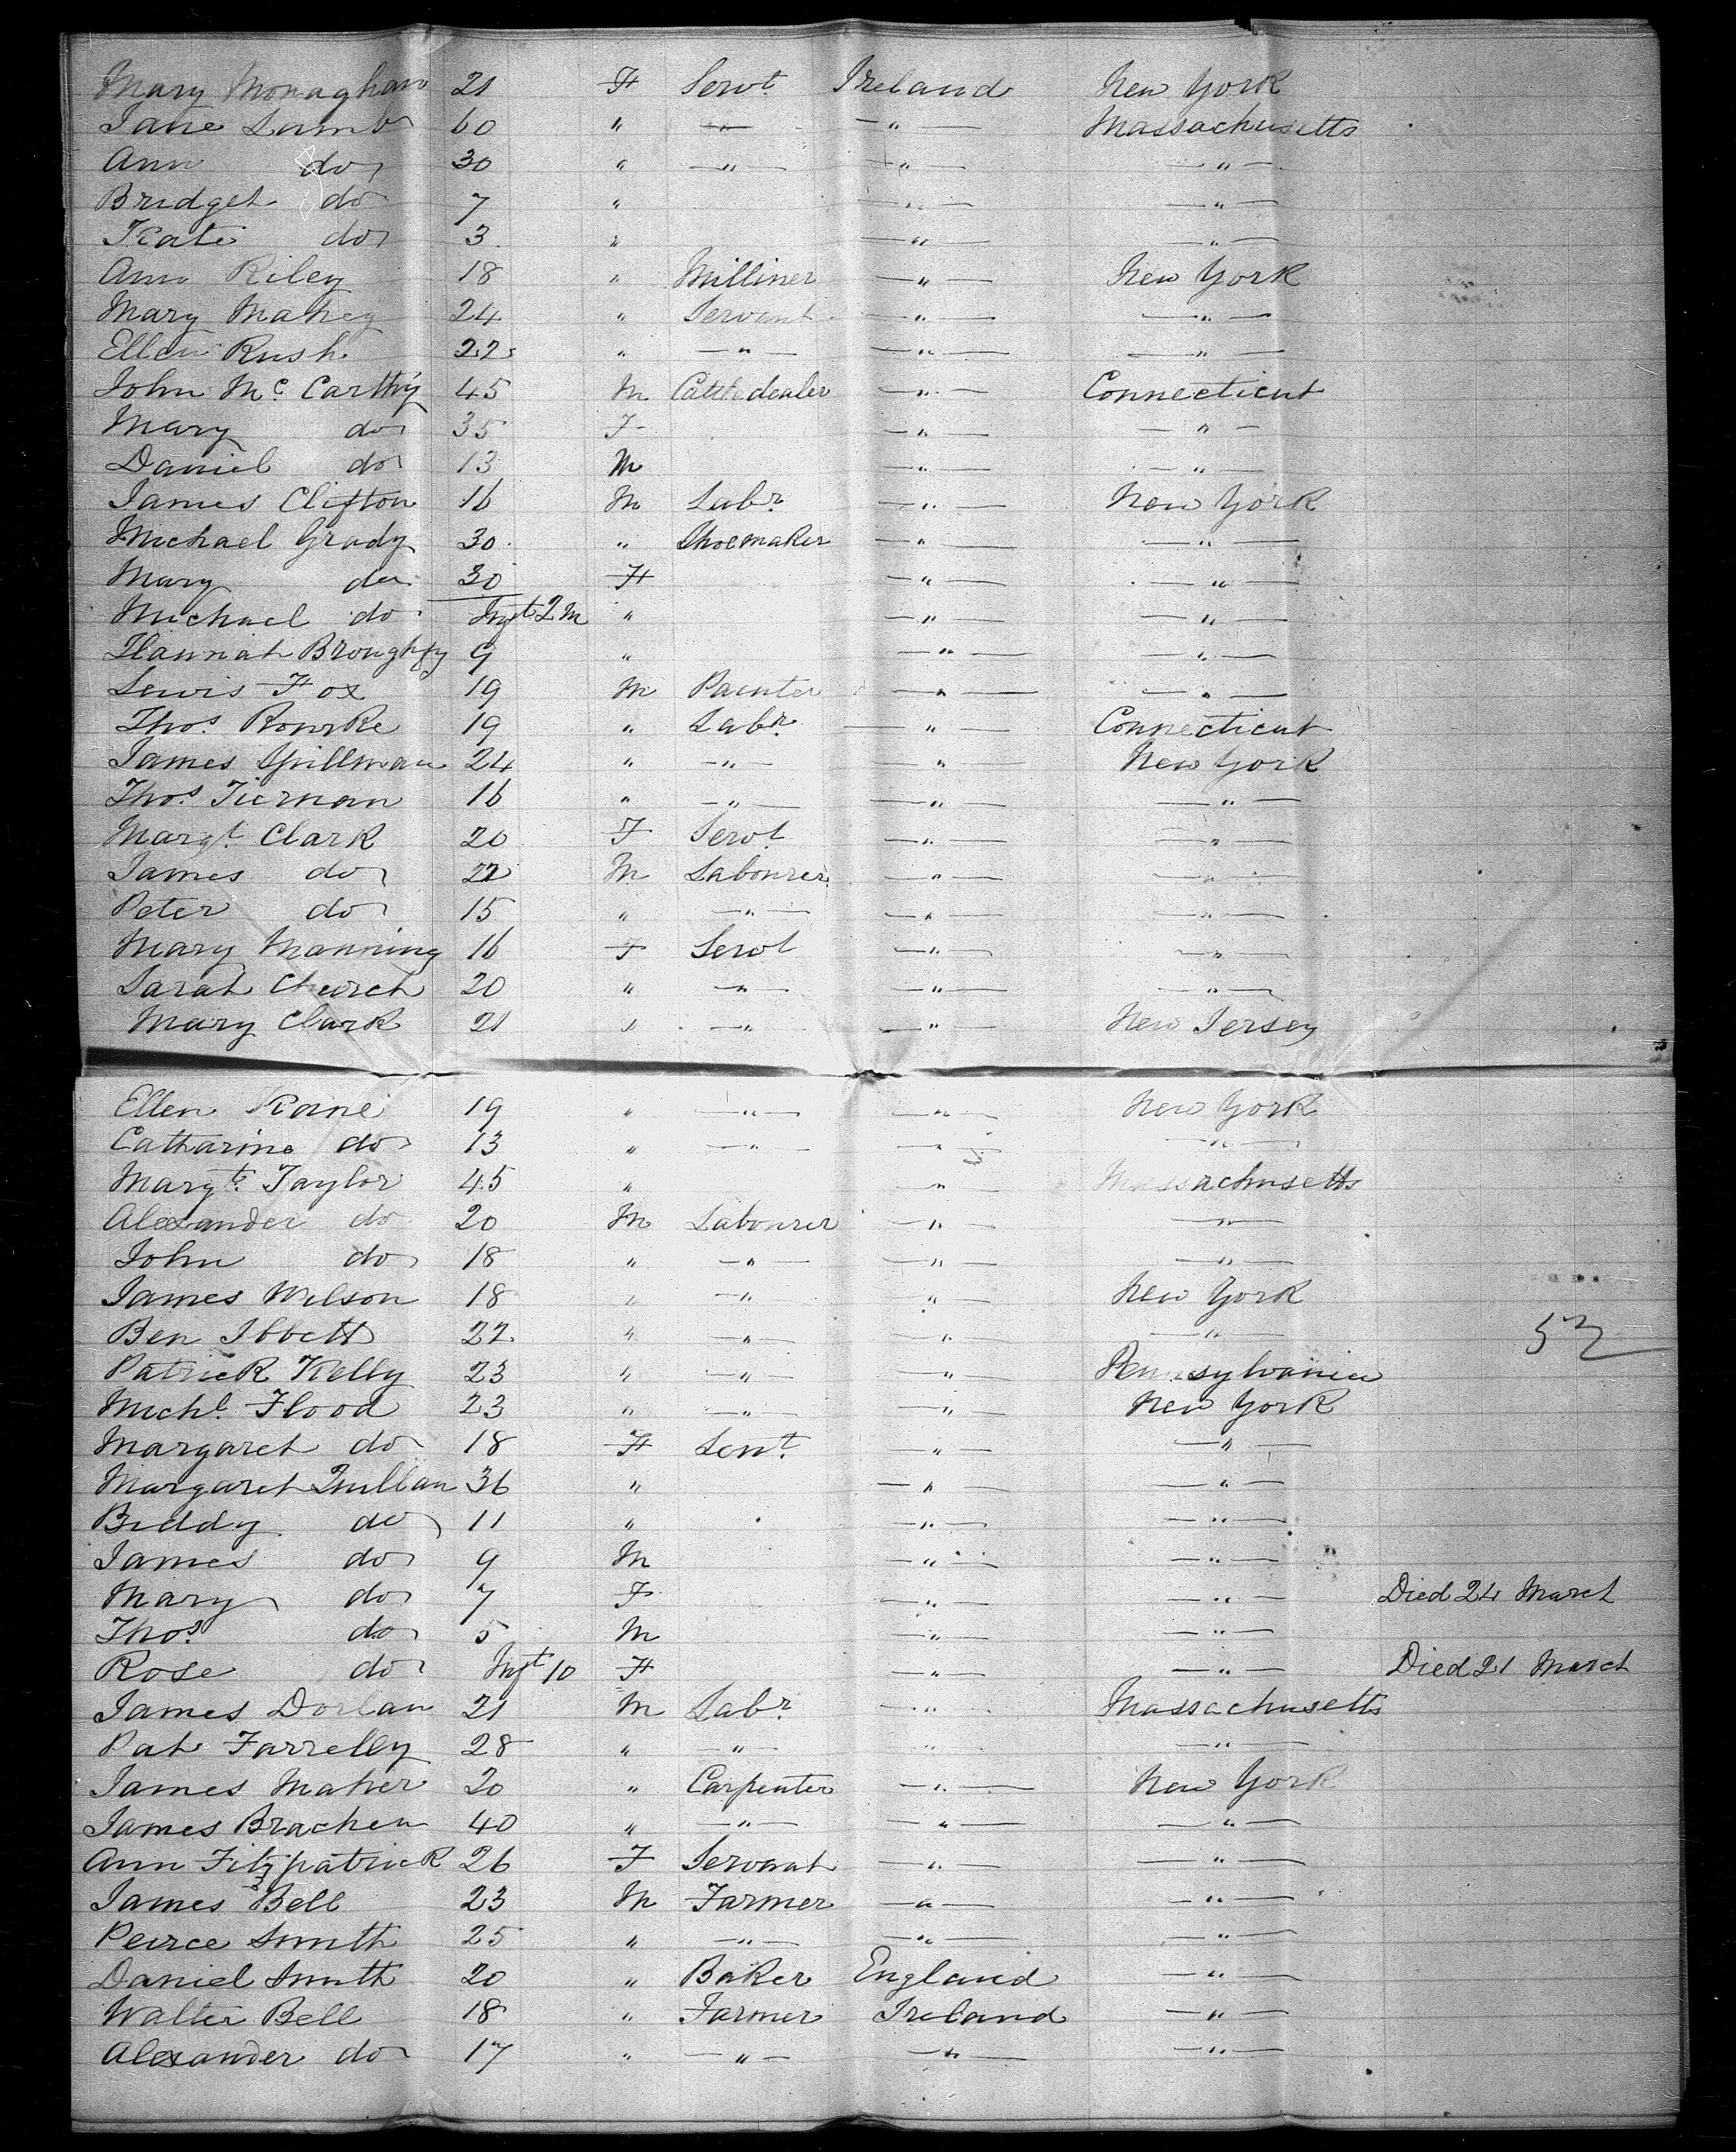 Mary Monaghan 21 F Servt. Ireland New York
Jane Lamb 60 " — —"— Massachusetts
Ann do 30 " —"— —"— —"—
Bridget do 7 " —"— —"—
Kate do 3 " —"— —"—
Ann Riley 18 " Milliner —"— New York
Mary Mahey 24 " Servant —"— —"—
Ellen Rush 22 " —"— —"— —"—
John Mc Carthy 45 M Cattle dealer —"— Connecticut
Mary do 35 F —"— —"—
Daniel do 13 M —"— —"—
James Clifton 16 M Labr. —"— New York
Michael Grady 30 " Shoemaker —"— —"—
Mary do 30 F —"— —"—
Michael do Inft 2 M " —"— —"—
Hannah Broughfy 9 " —"— —"—
Lewis Fox 19 M Painter —"— —"—
Thos. Rourke 19 " Labr. —"— Connecticut
James Spillman 24 " —"— —"— New York
Thos. Tiernan 16 " —"— —"— —"—
Margt. Clark 20 F Servt —"— —"—
James do 22 M Labourer —"— —"—
Peter do 15 " —"— —"— —"—
Mary Manning 16 F Servt —"— —"—
Sarah Church 20 " —"— —"— —"—
Mary Clark 21 " —"— —"— New Jersey
Ellen Kane 19 " —"— —"— New York
Catharine do 13 " —"— " —"—
Margt. Taylor 45 " —"— Massachusetts
Alexander do 20 M Labourer —"— —"—
John do 18 " —"— —"— —"—
James Wilson 18 " —"— —"— New York
Ben Ibbett 22 " —"— " —"—
53
Patrick Kelly 23 " —"— —"— Pennsylvania
Michl. Flood 23 " —"— —"— New York
Margaret do 18 F Servt. —"— —"—
Margaret Quillan 36 " —"— —"—
Biddy do 11 " —"— —"—
James do 9 M —"— —"—
Mary do 7 F —"— —"— Died 24 March
Thos. do 5 M —"— —"—
Rose do Inft 10 F —"— —"— Died 21 March
James Dorlan 21 M Labr. —"— Massachusetts
Pat Farrelly 28 " —"— " —"—
James Maher 20 " Carpenter —"— New York
James Bracken 40 " —"— —"— —"—
Ann Fitzpatrick 26 F Servant —"— —"—
James Bell 23 M Farmer —"— —"—
Peirce Smith 25 " —"— —"— —"—
Daniel Smith 20 " Baker England —"—
Walter Bell 18 " Farmer Ireland —"—
Alexander do 17 " —"— —"— —"—